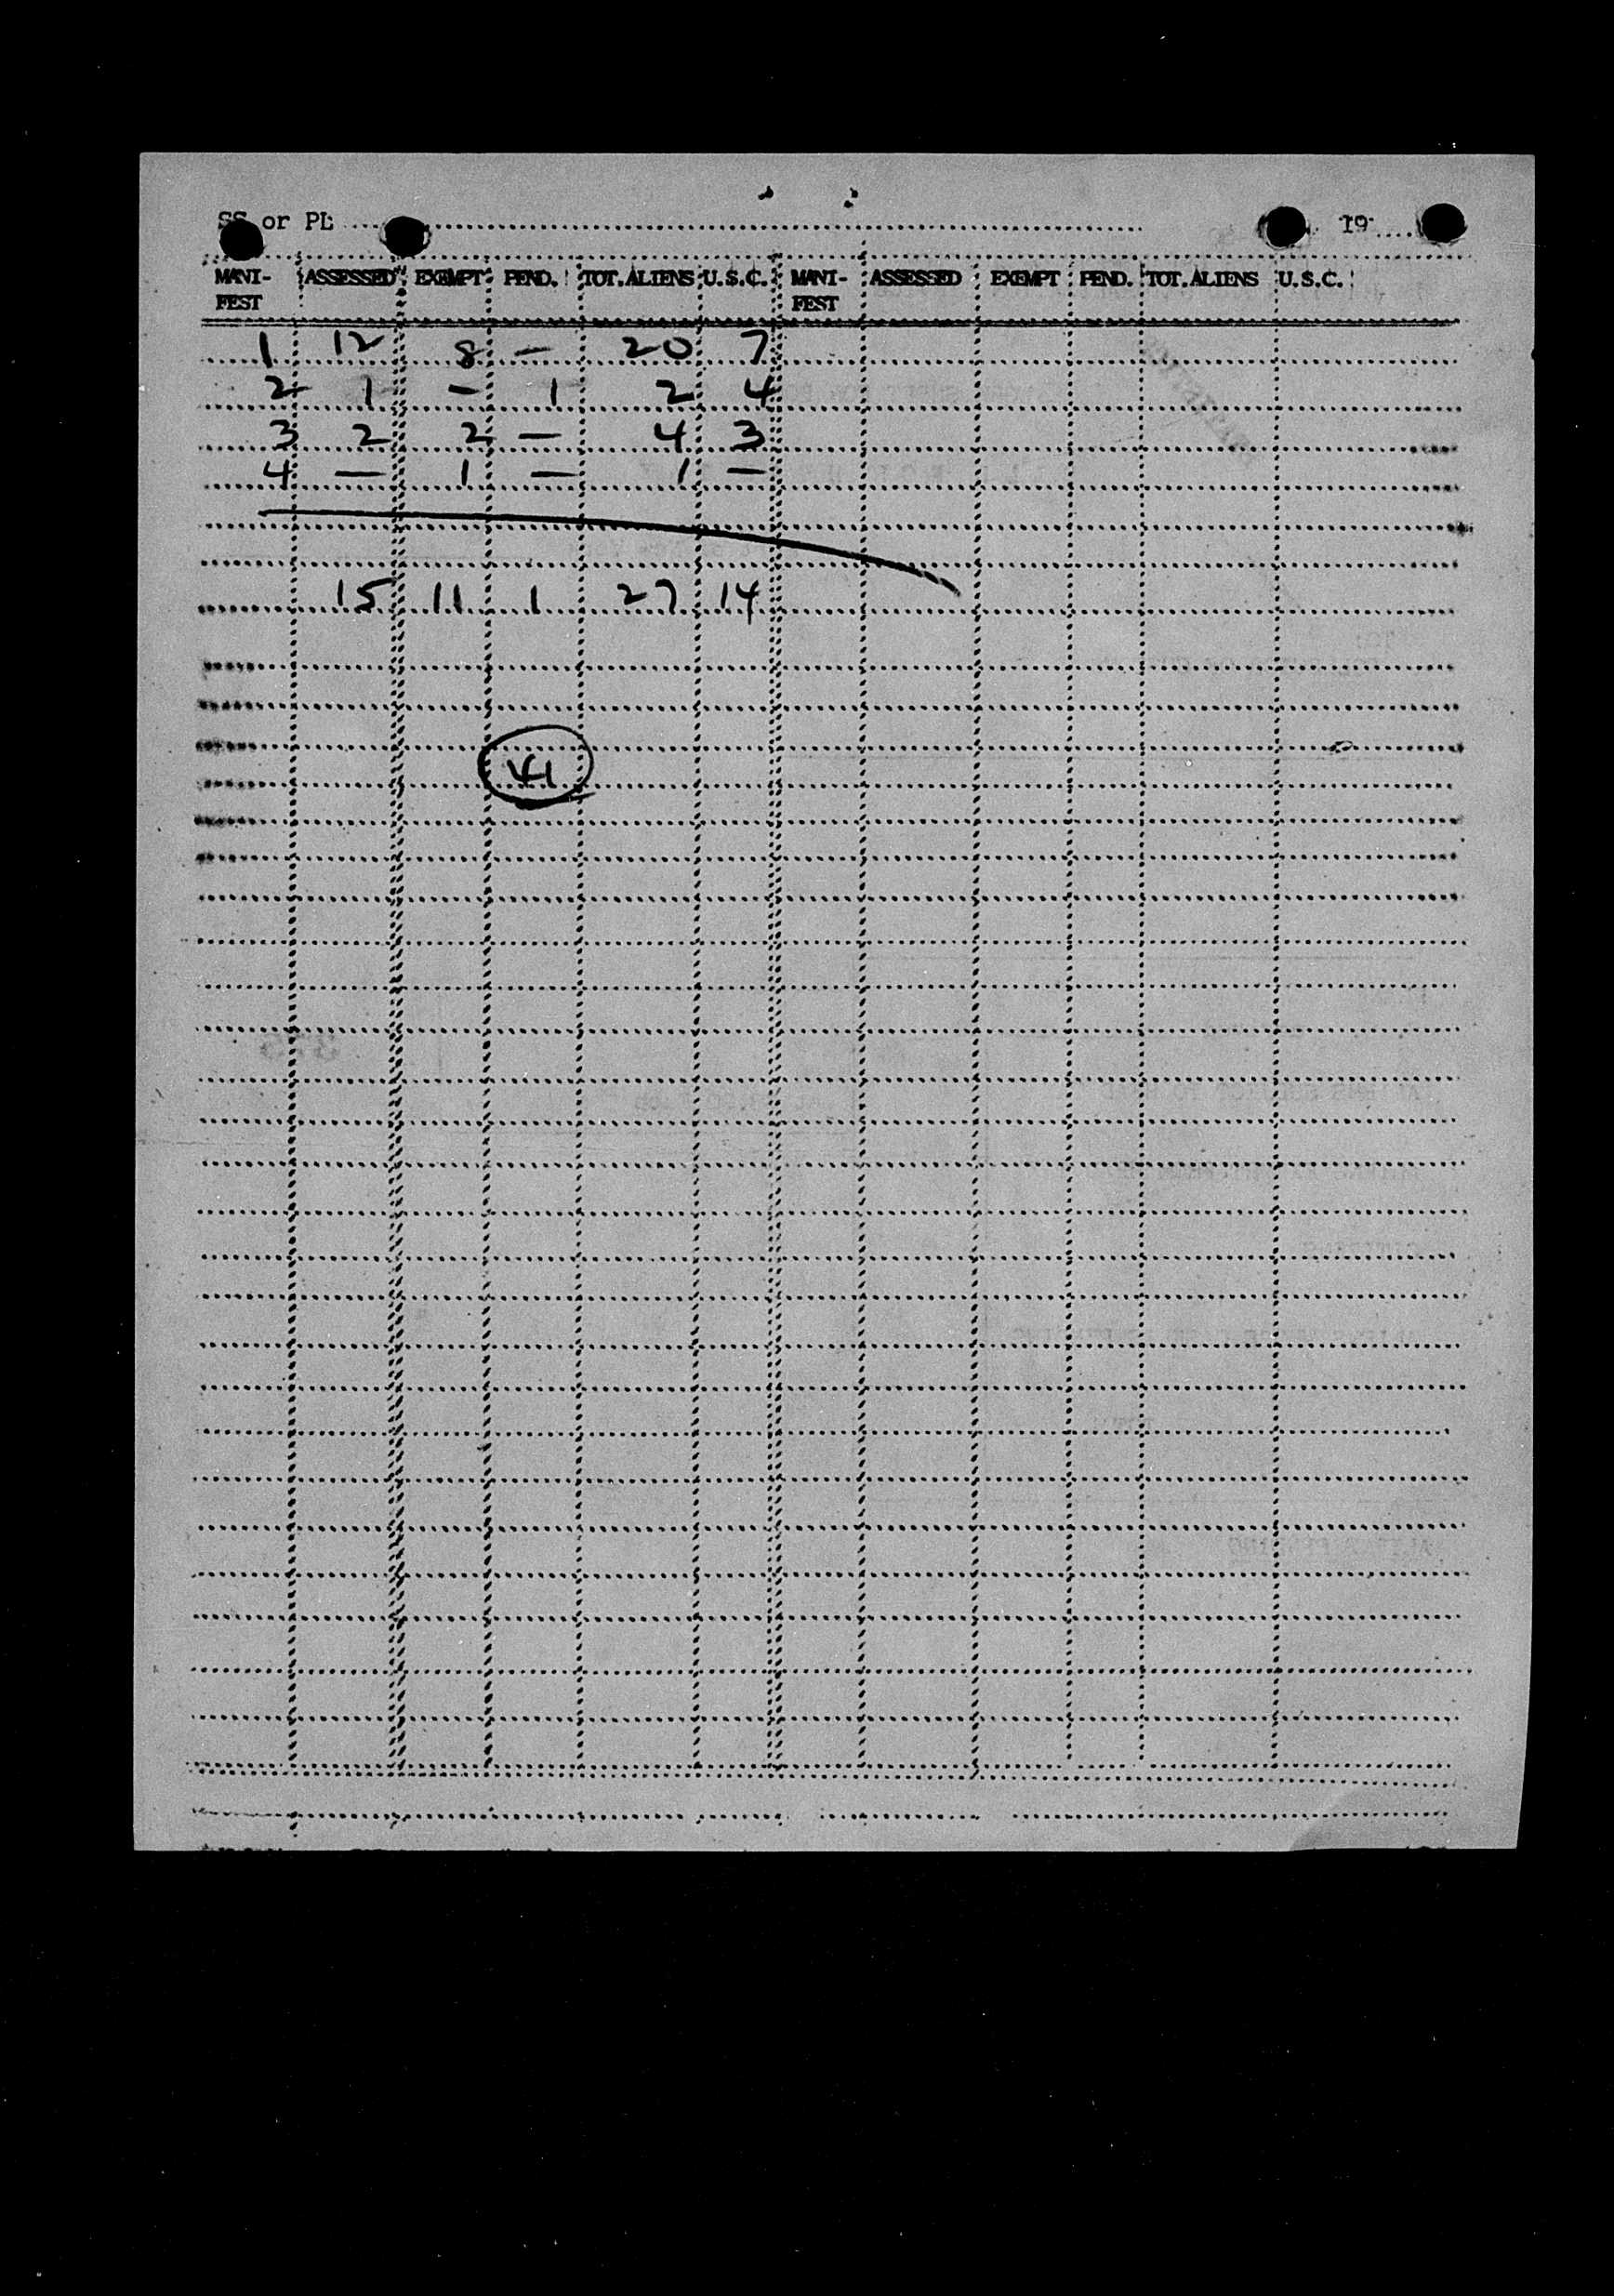 SS or PL 19
MANI-FEST ASSESSED EXEMPT PEND. TOT. ALIENS U.S.C. MANI-FEST ASSESSED EXEMPT PEND. TOT. ALIENS U.S.C.
1 12 8 — 20 7
2 1 — 1 2 4
3 2 2 — 4 3
4 — 1 — 1 —
15 11 1 27 14
41